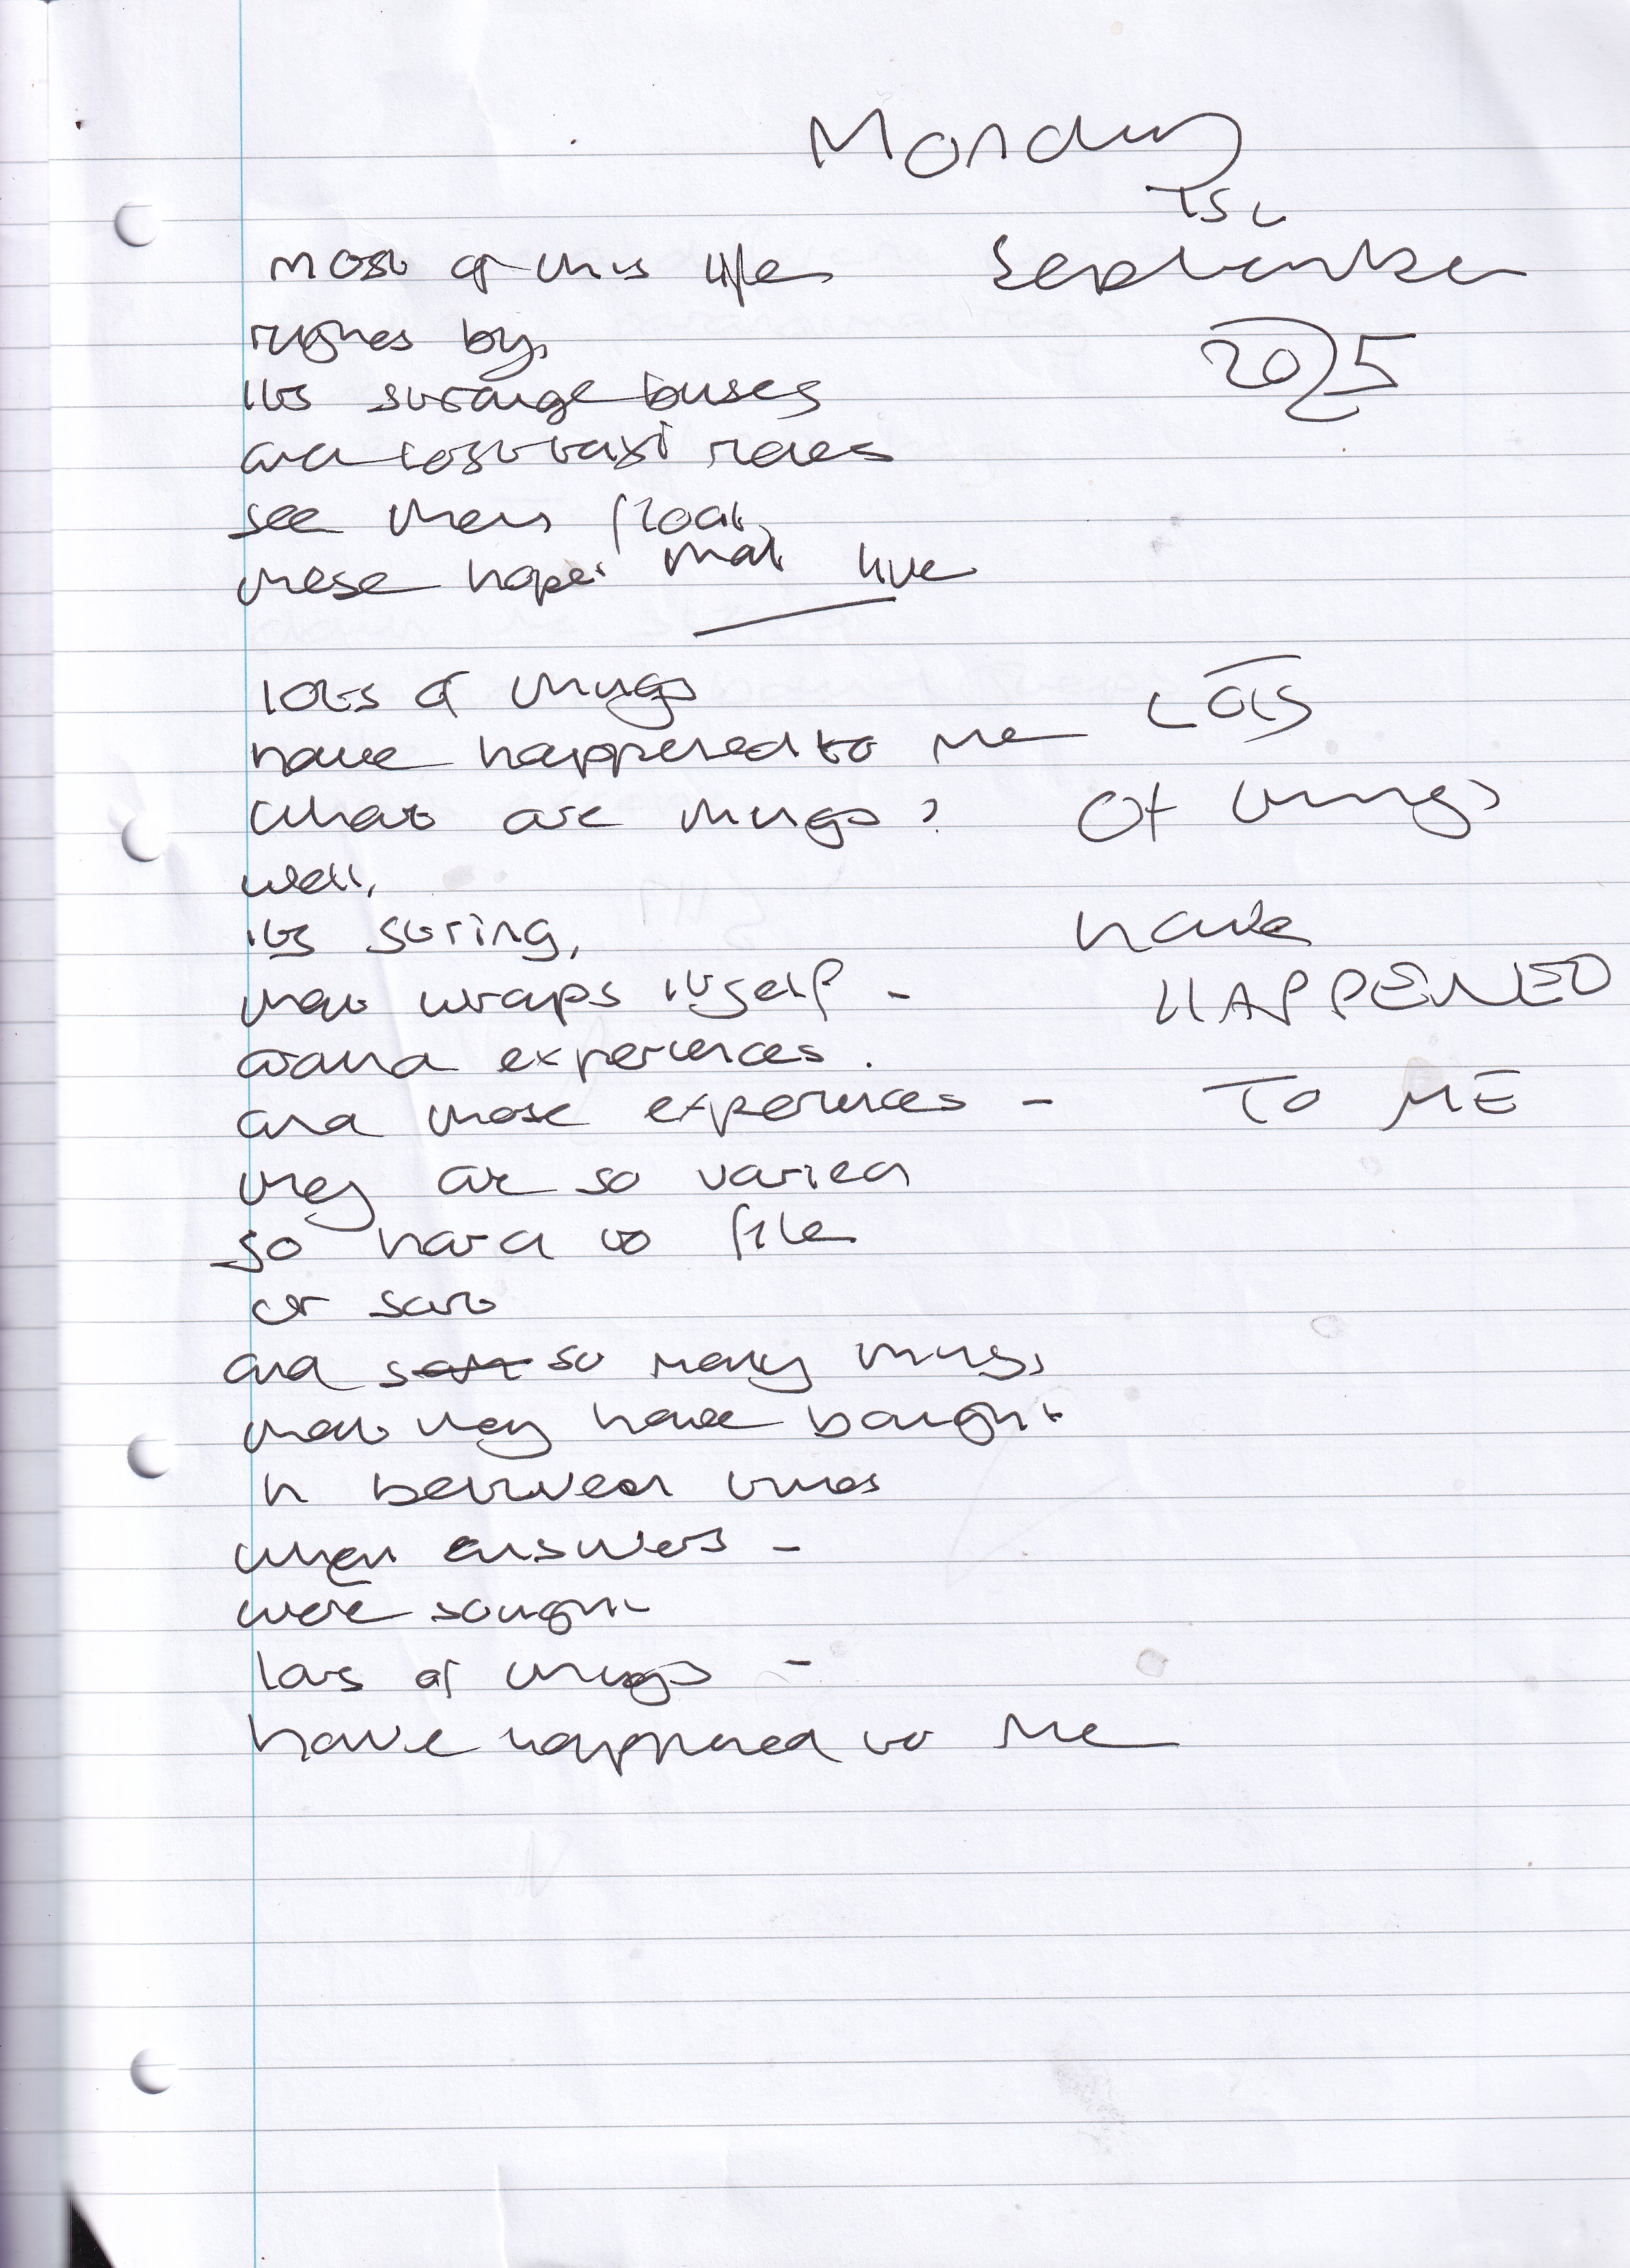 Monday
1st
September
2025
most of this life
rushes by,
its strange buses
and lost taxi rides
see them float,
these hopes that live
lots of things
have happened to me
what are things?
well,
its string,
that wraps itself -
around experiences.
and those experiences -
they are so varied
so hard to file
or sort
and so many things,
that they have bought
in between times
when answers -
were sought
lots of things -
have happened to me
LOTS
Of things
have
HAPPENED
TO ME